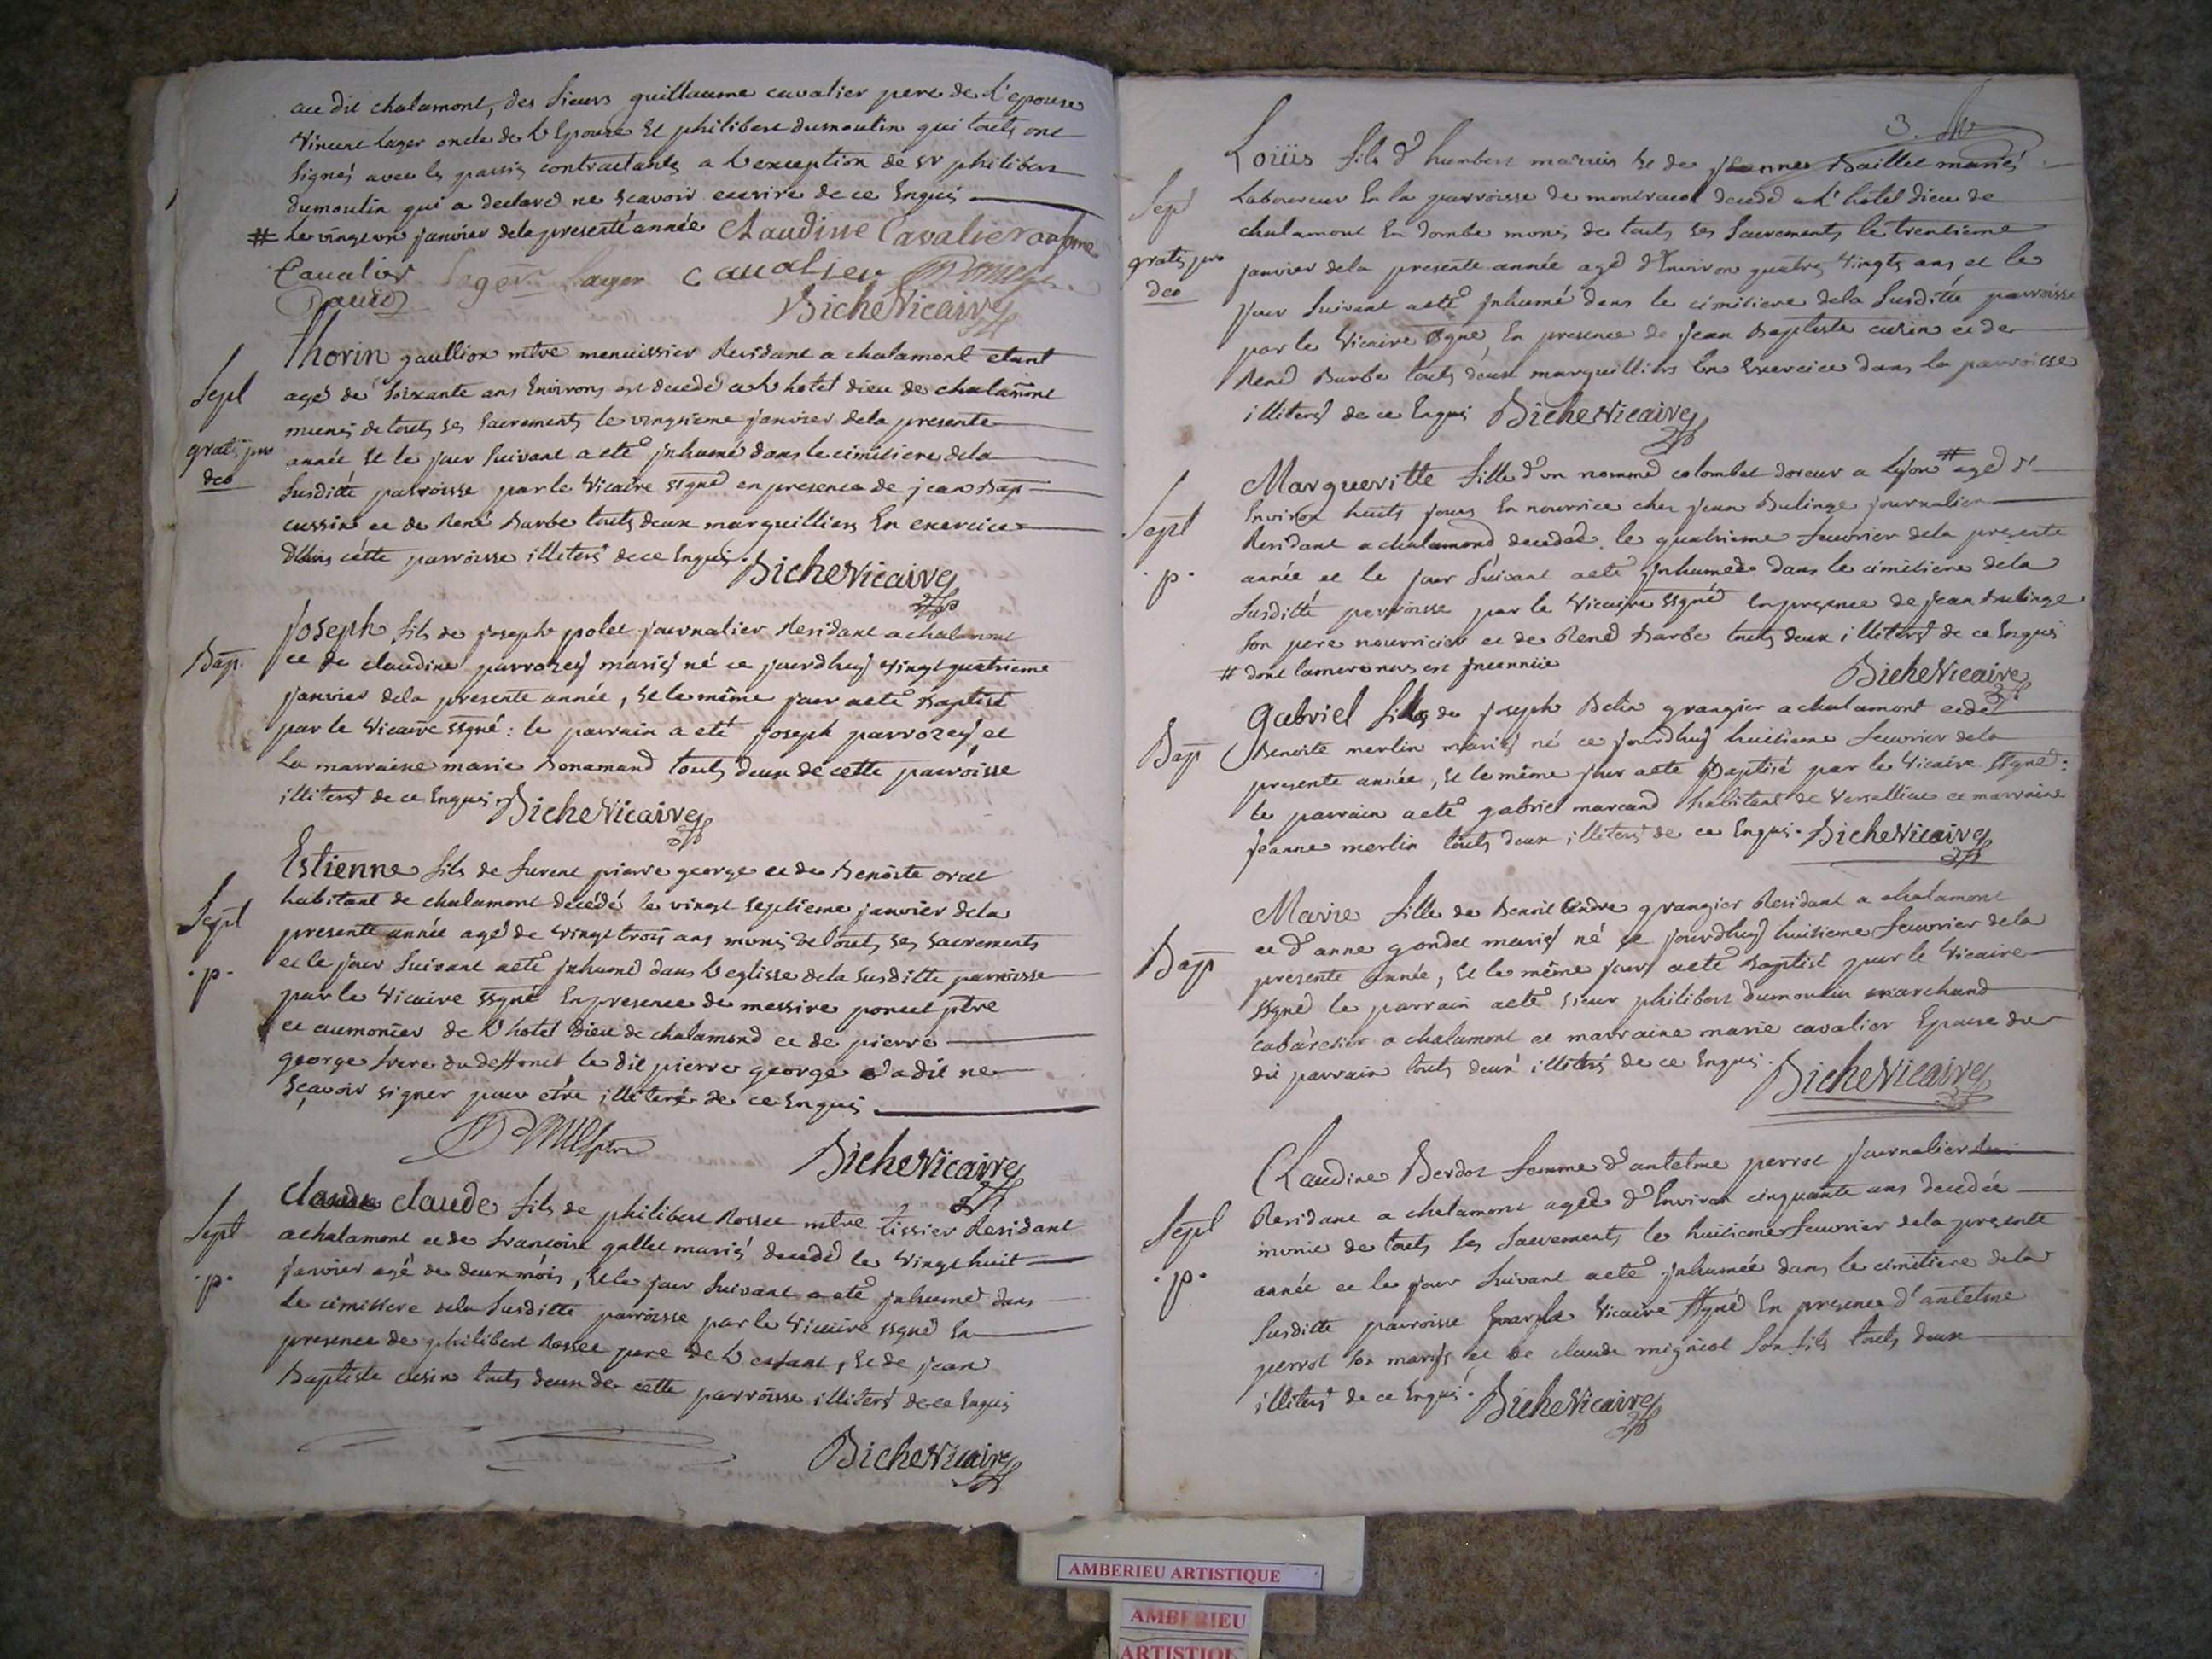 au dit chalamont, des sieurs guillaume cavalier pere de l'epouse
Vincent Lager oncle de l'Epouse et philibert dumoulin qui touts ont
signés avec les parties contractants a l'exception de sr philibert
dumoulin qui a declaré ne scavoir ecrire de ce Enquis
# Le vingt un janvier dela presente année Claudine Cavalier
Cavalier Lager Lager Cavalier
BicheVicaire
Thorin gaullion mtre menuissier Residant a chalamont etant
Sept agé de soixante ans Environs est decedé a l'hotel dieu de chalamont
munis de touts ses sacrements le vingtieme janvier dela presente
gratis pro année et le jour suivant a eté jnhumé dans le cimitiere dela
deo susditte parroisse par le Vicaire ssigné en presence de jean Bap
cussin et de René Barbe touts deux marguilliers En exercice
dans cette parroisse illiterés de ce Enquis. BicheVicaire
Joseph fils de joseph polet journalier Residant a chalamont
Bap. et de claudine parrozey mariés né ce jourdhuy vingt quatrieme
janvier dela presente année, et le même jour a eté Baptisé
par le Vicaire ssigné: le parrain a eté joseph parrozey et
la marraine marie Bonamand touts deux de cette parroisse
illiterés de ce Enquis. BicheVicaire
Estienne fils de furent pierre george et de Benoite
Sept habitant de chalamont decédé le vingt septieme janvier dela
presente année agé de vingt trois ans munis de touts ses sacrements
.p. et le jour suivant a eté jnhumé dans l'eglisse dela susditte parroisse
par le Vicaire ssigné En presence de messire poncet ptre
et aumonier de l'hotel Dieu de chalamond et de pierre
george frere du deffunct le dit pierre george a dit ne
sçavoir signer pour etre illiteré de ce Enquis
BicheVicaire
claude fils de philibert Rosset mtre tissier Residant
Sept a chalamont et de francoise gallet mariés decedé le vingt huit
.p. janvier agé de deux mois, et le jour suivant a eté jnhumé dans
le cimittere dela susditte parroisse par le Vicaire ssigné En
presence de philibert Rosset pere de l'enfant, et de jean
Baptiste cusin touts deux de cette parroisse illiterés de ce Enquis
BicheVicaire
3.
Loüis fils d'humbert et de jeanne Baillet mariés
Sept Laboureur En la parroisse de montracol decedé a l'hôtel dieu de
chalamont En dombe munis de touts ses sacrements le trentieme
gratis pro janvier dela presente année agé d'Environ quatre vingts ans et le
deo jour suivant a eté jnhumé dans le cimitiere dela susditte parroisse
par le Vicaire ssigné En presence de jean Baptiste cusin et de
René Barbe touts deux marguilliers En Exercice dans la parroisse
illiterés de ce Enquis BicheVicaire
Margueritte fille d'un nommé colombet doreur a Lyon # agé d'
Sept Environ huits jours En nourrice chez jean Bulinge journalier
Residant a chalamond decedeé le quatrieme feuvrier dela presente
.p. année et le jour suivant a eté jnhumeé dans le cimitiere dela
susditté parroisse par le Vicaire ssigné En presence de jean Bulinge
son pere nourricier et de René Barbe touts deux illiterés de ce Enquis
# dont la mere nous est jnconnüe BicheVicaire
Gabriel fils de joseph Belin grangier a chalamont et de
Bap Benoite merlin mariés né ce jourdhuy huitieme feuvrier dela
presente année, et le même jour a eté Baptisé par le Vicaire ssigné:
le parrain a eté gabriel marcand habitant de Versallieu et marraine
jeanne merlin touts deux illiterés de ce Enquis. BicheVicaire
Marie fille de Benoit andre grangier Residant a chalamont
Bap et d'anne gondet mariés né ce jourdhuy huitieme feuvrier dela
presente année, et le même jour a eté Baptisé par le Vicaire
ssigné le parrain a eté sieur philibert dumoulin marchand
cabaretier a chalamont et marraine marie cavalier Epouse du
dit parrain touts deux illiterés de ce Enquis. BicheVicaire
Claudine Berdot femme d'antelme perrot journalier
Sept Residant a chalamont ageé d'Environ cinquante ans decedée
munie de touts ses sacrements le huitieme feuvrier dela presente
.p. année et le jour suivant a eté jnhumée dans le cimitiere dela
susditte parroisse par le Vicaire ssigné En presence d'antelme
perrot son marys et de claude mignot son fils touts deux
illiterés de ce Enquis. BicheVicaire
AMBERIEU ARTISTIQUE
AMBERIEU